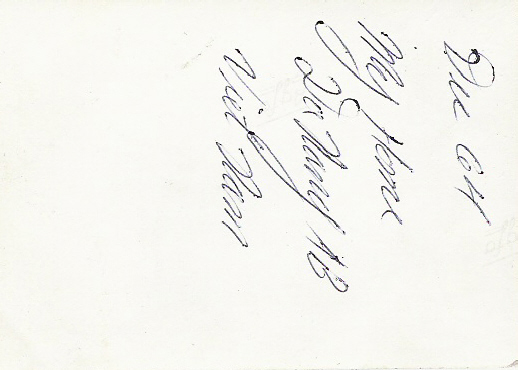 Dec 64
My Home
Da Nang AB
Viet Nam